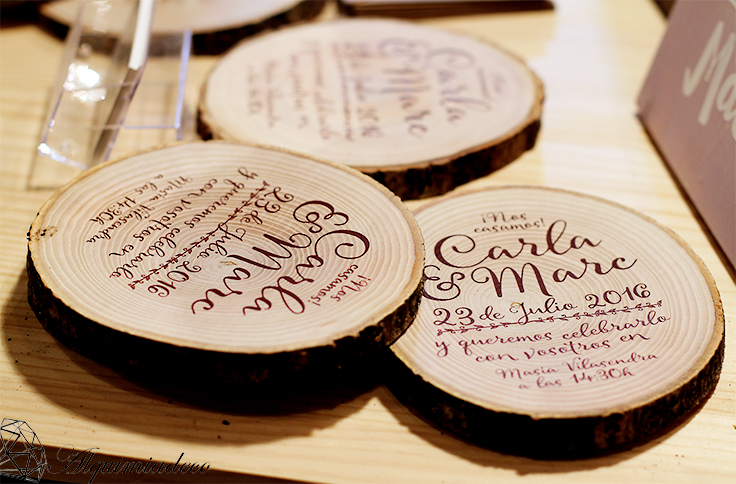 ¡Nos
casamos!
Carla
& Marc
23 de Julio 2016
y queremos celebrarlo
con vosotros en
Masia Vilasendra
a las 14:30h
¡Nos
casamos!
Carla
& Marc
23 de Julio 2016
y queremos celebrarlo
con vosotros en
Masia Vilasendra
a las 14:30h
Carla
& Marc
23 de Julio 2016
Ma
Alquimiadeco